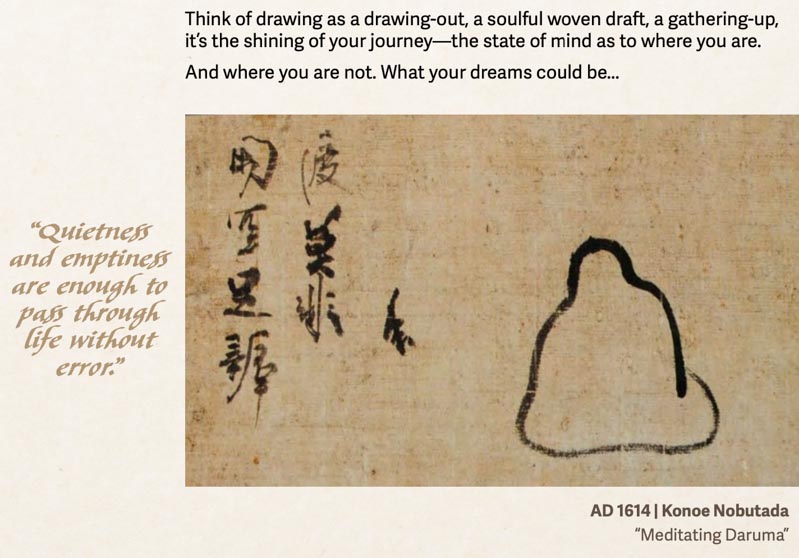 Think of drawing as a drawing-out, a soulful woven draft, a gathering-up,
it’s the shining of your journey—the state of mind as to where you are.
And where you are not. What your dreams could be...
“Quietness
and emptiness
are enough to
pass through
life without
error.”
AD 1614 | Konoe Nobutada
“Meditating Daruma”